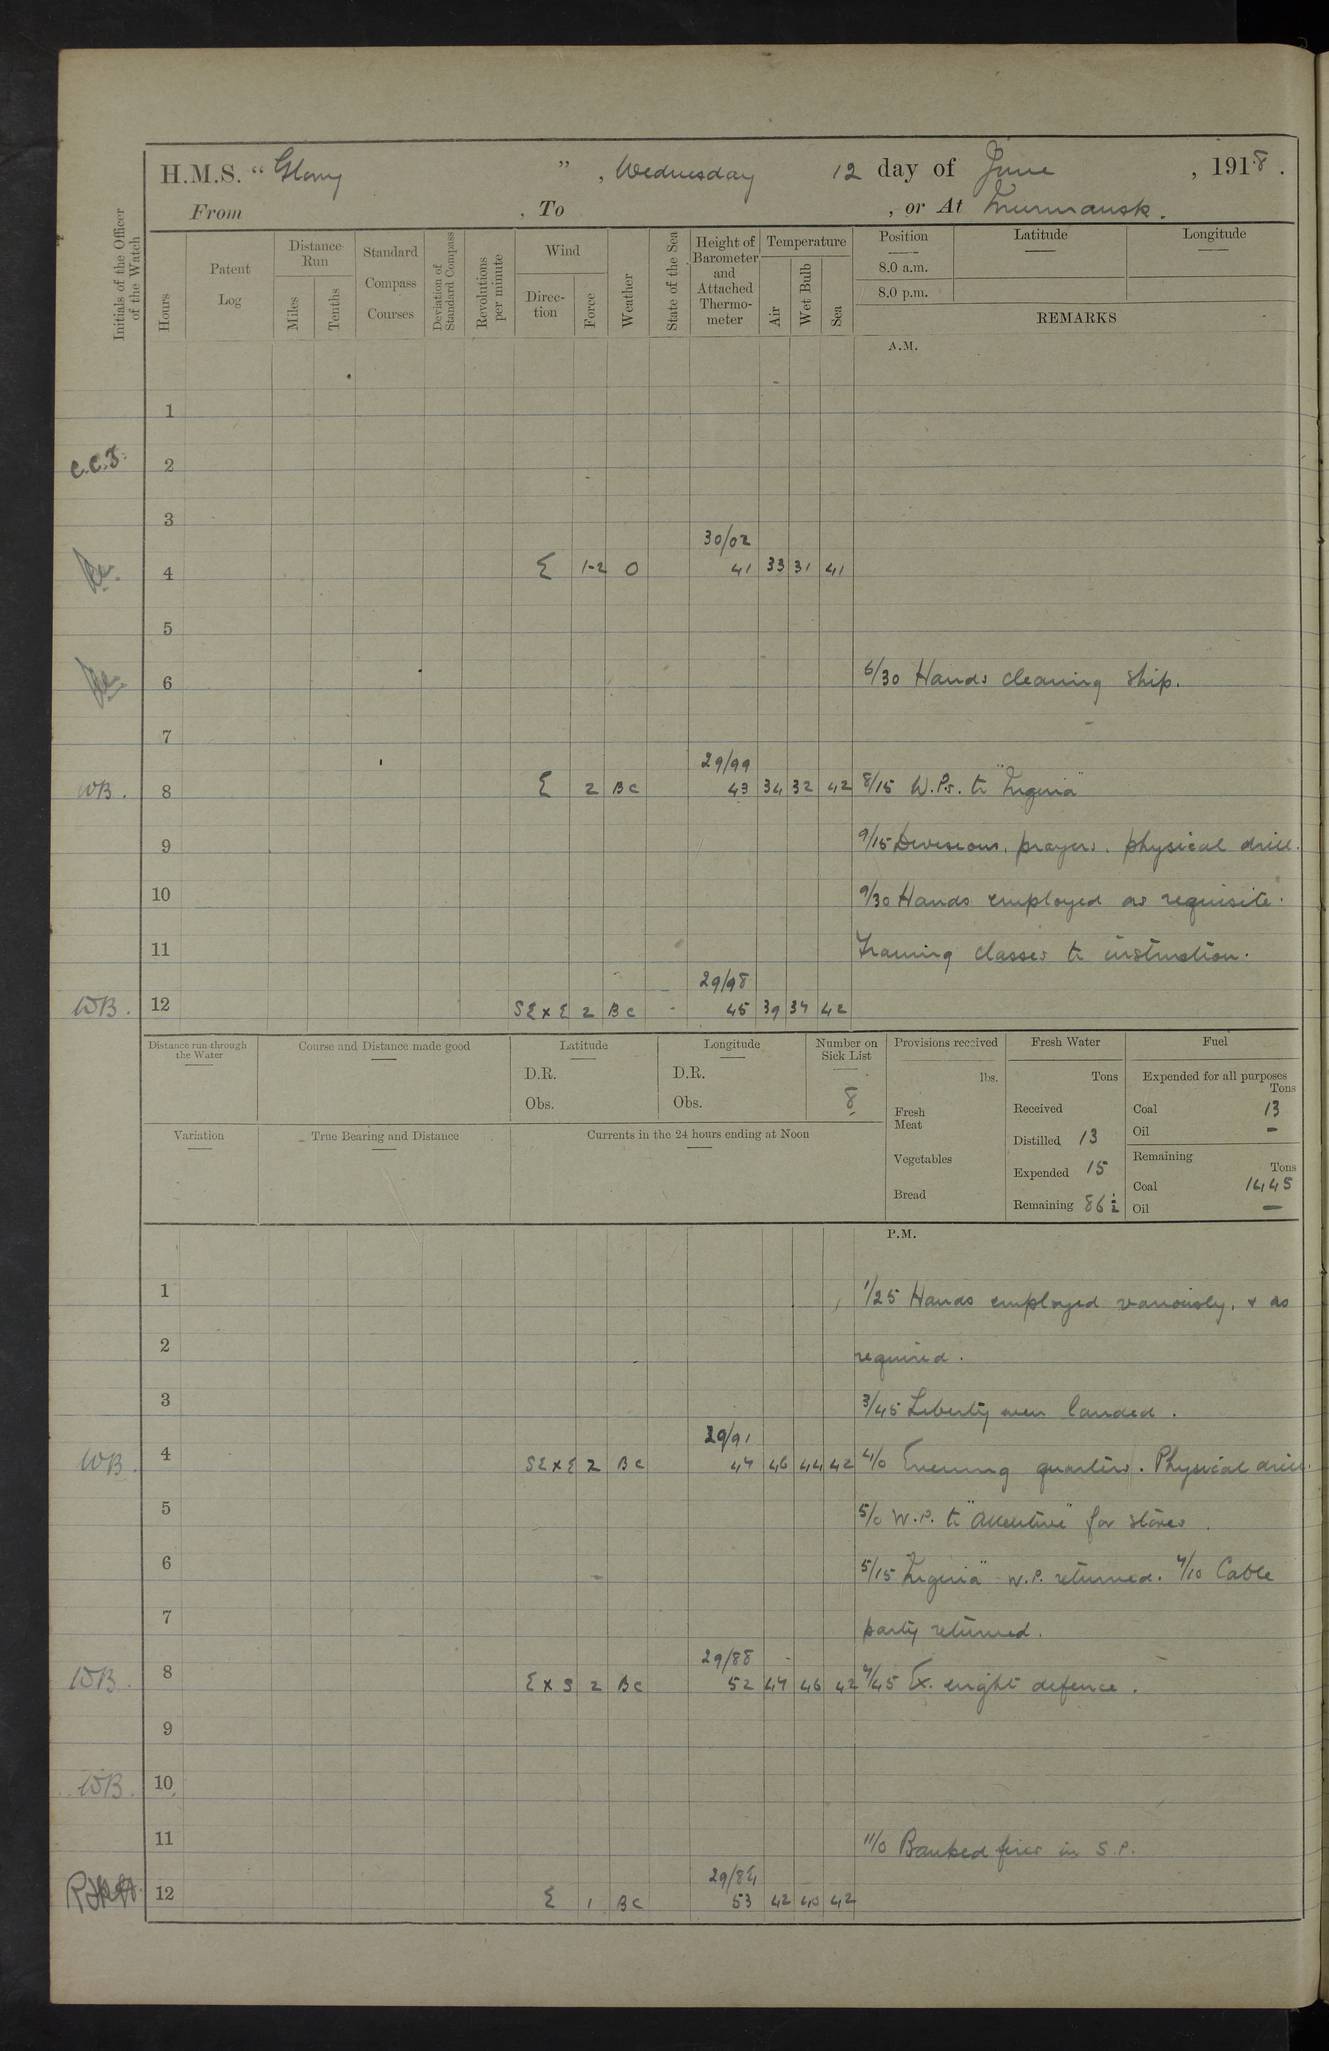 H.M.S. " Glory ", Wednesday 12 day of June, 1918.
From , To , or At Murmansk.
Initials of the Officer of the Watch
Hours
Patent Log
Distance Run
Miles
Tenths
Standard Compass Courses
Deviation of Standard Compass
Revolutions per minute
Wind
Direction
Force
Weather
State of the Sea
Height of Barometer and Attached Thermometer
Temperature
Air
Wet Bulb
Sea
Position
8.0 a.m.
8.0 p.m.
Latitude
Longitude
REMARKS
A.M.
1
C.C.J. 2
3
30/02
4 E 1-2 O 41 33 31 41
5
6 6/30 Hands cleaning ship.
7
29/99
WB. 8 E 2 BC 43 34 32 42 8/15 W.Ps. to "Nigeria"
9 9/15 Divisions, prayers, physical drill.
10 9/30 Hands employed as requisite.
11 Training classes to instruction.
29/98
WB. 12 SExE 2 BC 45 39 37 42
Distance run through the Water
Course and Distance made good
Latitude
D.R.
Obs.
Longitude
D.R.
Obs.
Number on Sick List
8
Provisions received
lbs.
Fresh Meat
Vegetables
Bread
Fresh Water
Tons
Received
Distilled 13
Expended 15
Remaining 86½
Fuel
Expended for all purposes
Tons
Coal 13
Oil —
Remaining
Tons
Coal 1445
Oil —
Variation
True Bearing and Distance
Currents in the 24 hours ending at Noon
P.M.
1 1/25 Hands employed variously, & as
2 required.
3 3/45 Liberty men landed.
29/91
WB. 4 SExE 2 BC 47 46 44 42 4/0 Evening quarters. Physical drill.
5 5/0 W.P. to "Attentive" for stores.
6 5/15 "Nigeria" W.P. returned. 7/10 Cable
7 party returned.
29/88
WB. 8 ExS 2 BC 52 47 46 42 7/45 Ex. night defence.
9
WB. 10
11 11/0 Banked fires in S.P.
29/84
12 E 1 BC 53 42 40 42